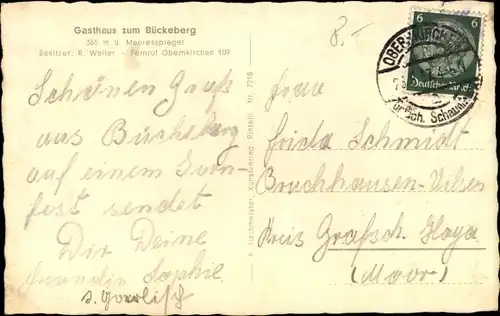 Gasthaus zum Bückeberg
365 m ü. Meeresspiegel
Besitzer: R. Walter - Fernruf Obernkirchen 109
8.-
Schönen Gruß
aus Bückeberg
auf einem Turn-
fest sendet
Dir Deine
Freundin Sophie
K. Hachmeister, Kunstverlag, Rinteln Nr. 7218
6 6
Deutsches Reich
OBERNKIRCHEN
Grafsch. Schaumb
Frau
Frida Schmidt
Bruchhausen-Vilsen
Kreis Grafsch. Hoya
(Moor)